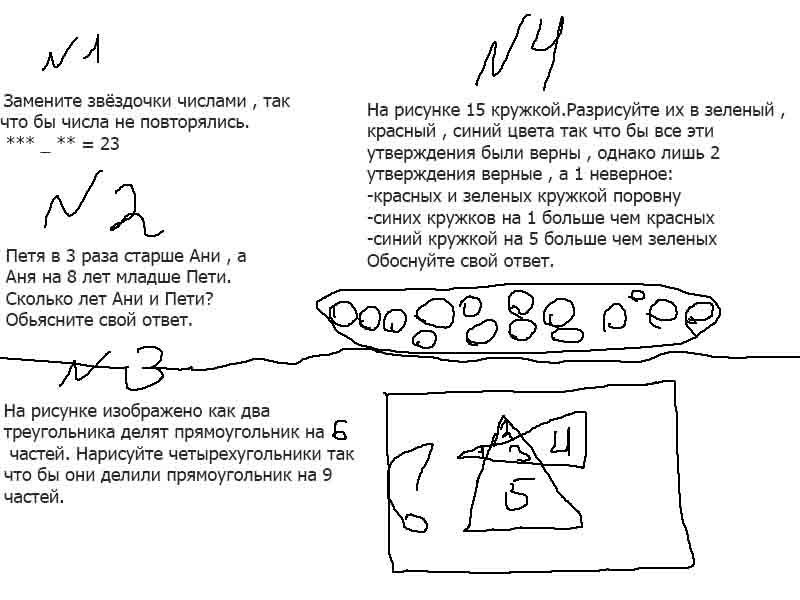 N1
Замените звёздочки числами , так
что бы числа не повторялись.
*** _ ** = 23
N2
Петя в 3 раза старше Ани , а
Аня на 8 лет младше Пети.
Сколько лет Ани и Пети?
Обьясните свой ответ.
N3
На рисунке изображено как два
треугольника делят прямоугольник на 6
частей. Нарисуйте четырехугольники так
что бы они делили прямоугольник на 9
частей.
N4
На рисунке 15 кружкой.Разрисуйте их в зеленый ,
красный , синий цвета так что бы все эти
утверждения были верны , однако лишь 2
утверждения верные , а 1 неверное:
-красных и зеленых кружкой поровну
-синих кружков на 1 больше чем красных
-синий кружкой на 5 больше чем зеленых
Обоснуйте свой ответ.
4
5